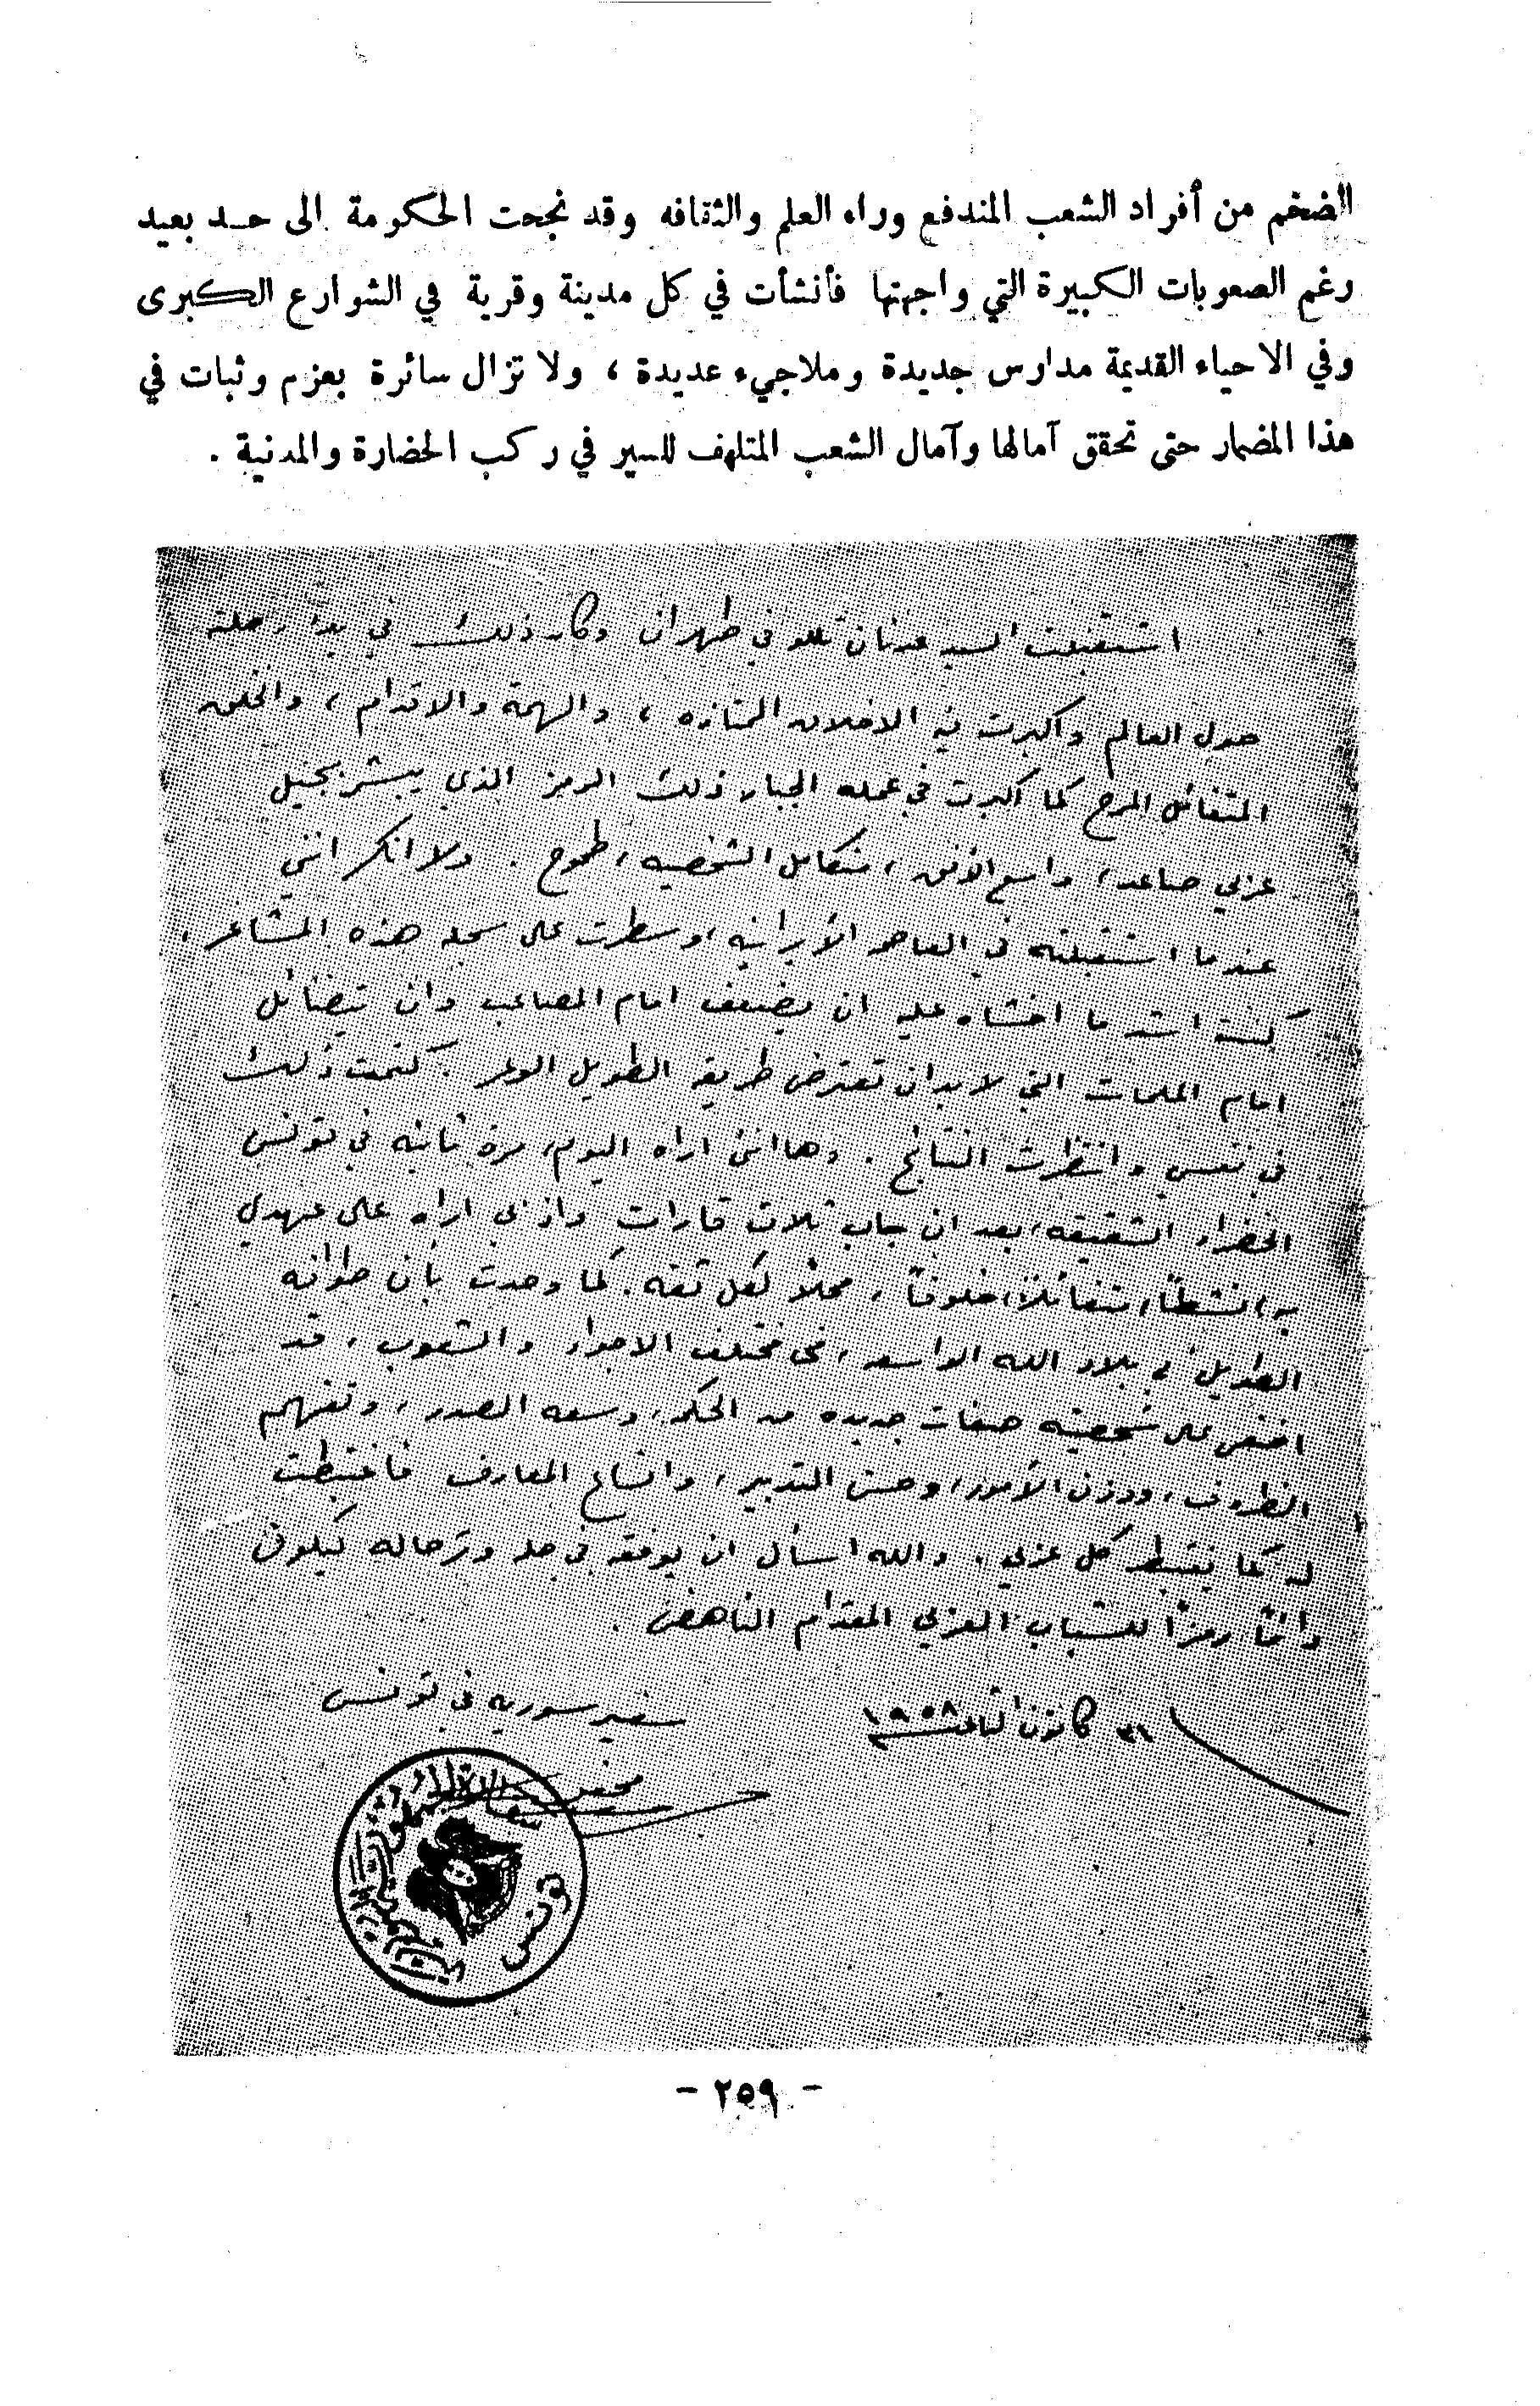 الضخم من أفراد الشعب المندفع وراء العلم والثقافه وقد نجحت الحكومة الى حد بعيد
رغم الصعوبات الكبيرة التي واجهتها فأنشأت في كل مدينة وقرية في الشوارع الكبرى
وفي الاحياء القديمة مدارس جديدة وملاجيء عديدة ، ولا تزال سائرة بعزم وثبات في
هذا المضمار حتى تحقق آمالها وآمال الشعب المتلهف للسير في ركب الحضارة والمدنية .
استقبلت السيد عدنان تللو في طهران وكان ذلك في بدء رحلته
حول العالم واكبرت فيه الاخلاق الممتازه ، والهمة والاقدام ، والخلق
المتفائل المرح كما اكبرت في عمله الجبار ذلك الرمز الذي يبشر بجيل
عربي صاعد ، واسع الأفق ، متكامل الشخصيه ، طموح . ولا انكر انني
عندما استقبلته في العاصمه الأيرانيه ، وسطرت على سجله هذه المشاعر ،
كنت اشد ما اخشاه عليه ان يضعف امام المصاعب وان يتضائل
امام الملمات التي لا بد ان تعترض طريقه الطويل الوعر . كتمت ذلك
في نفسي وانتظرت النتائج . وها انني اراه اليوم ، مرة ثانيه في تونس
الخضراء الشقيقه ، بعد ان جاب ثلاث قارات واذ بي اراه على عهدي
به ، نشطاً ، متفائلاً ، خلوقاً ، محلاً لكل ثقه . كما وجدت بأن طوافه
الطويل في بلاد الله الواسعه ، في مختلف الاجواء والشعوب ، قد
اضفى على شخصيته صفات جديده من الحكمه ، وسعه الصدر ، وتفهم
الظروف ، ووزن الأمور ، وحسن التدبير ، واتساع المعارف فاغتبطت
له كما يغتبط كل عربي . والله اسأل ان يوفقه في حله وترحاله ليكون
دائماً رمزاً للشباب العربي المقدام الناهض .
٣١ كانون الثاني ١٩٥٨
سفير سوريه في تونس
تونس
- ٢٥٩ -